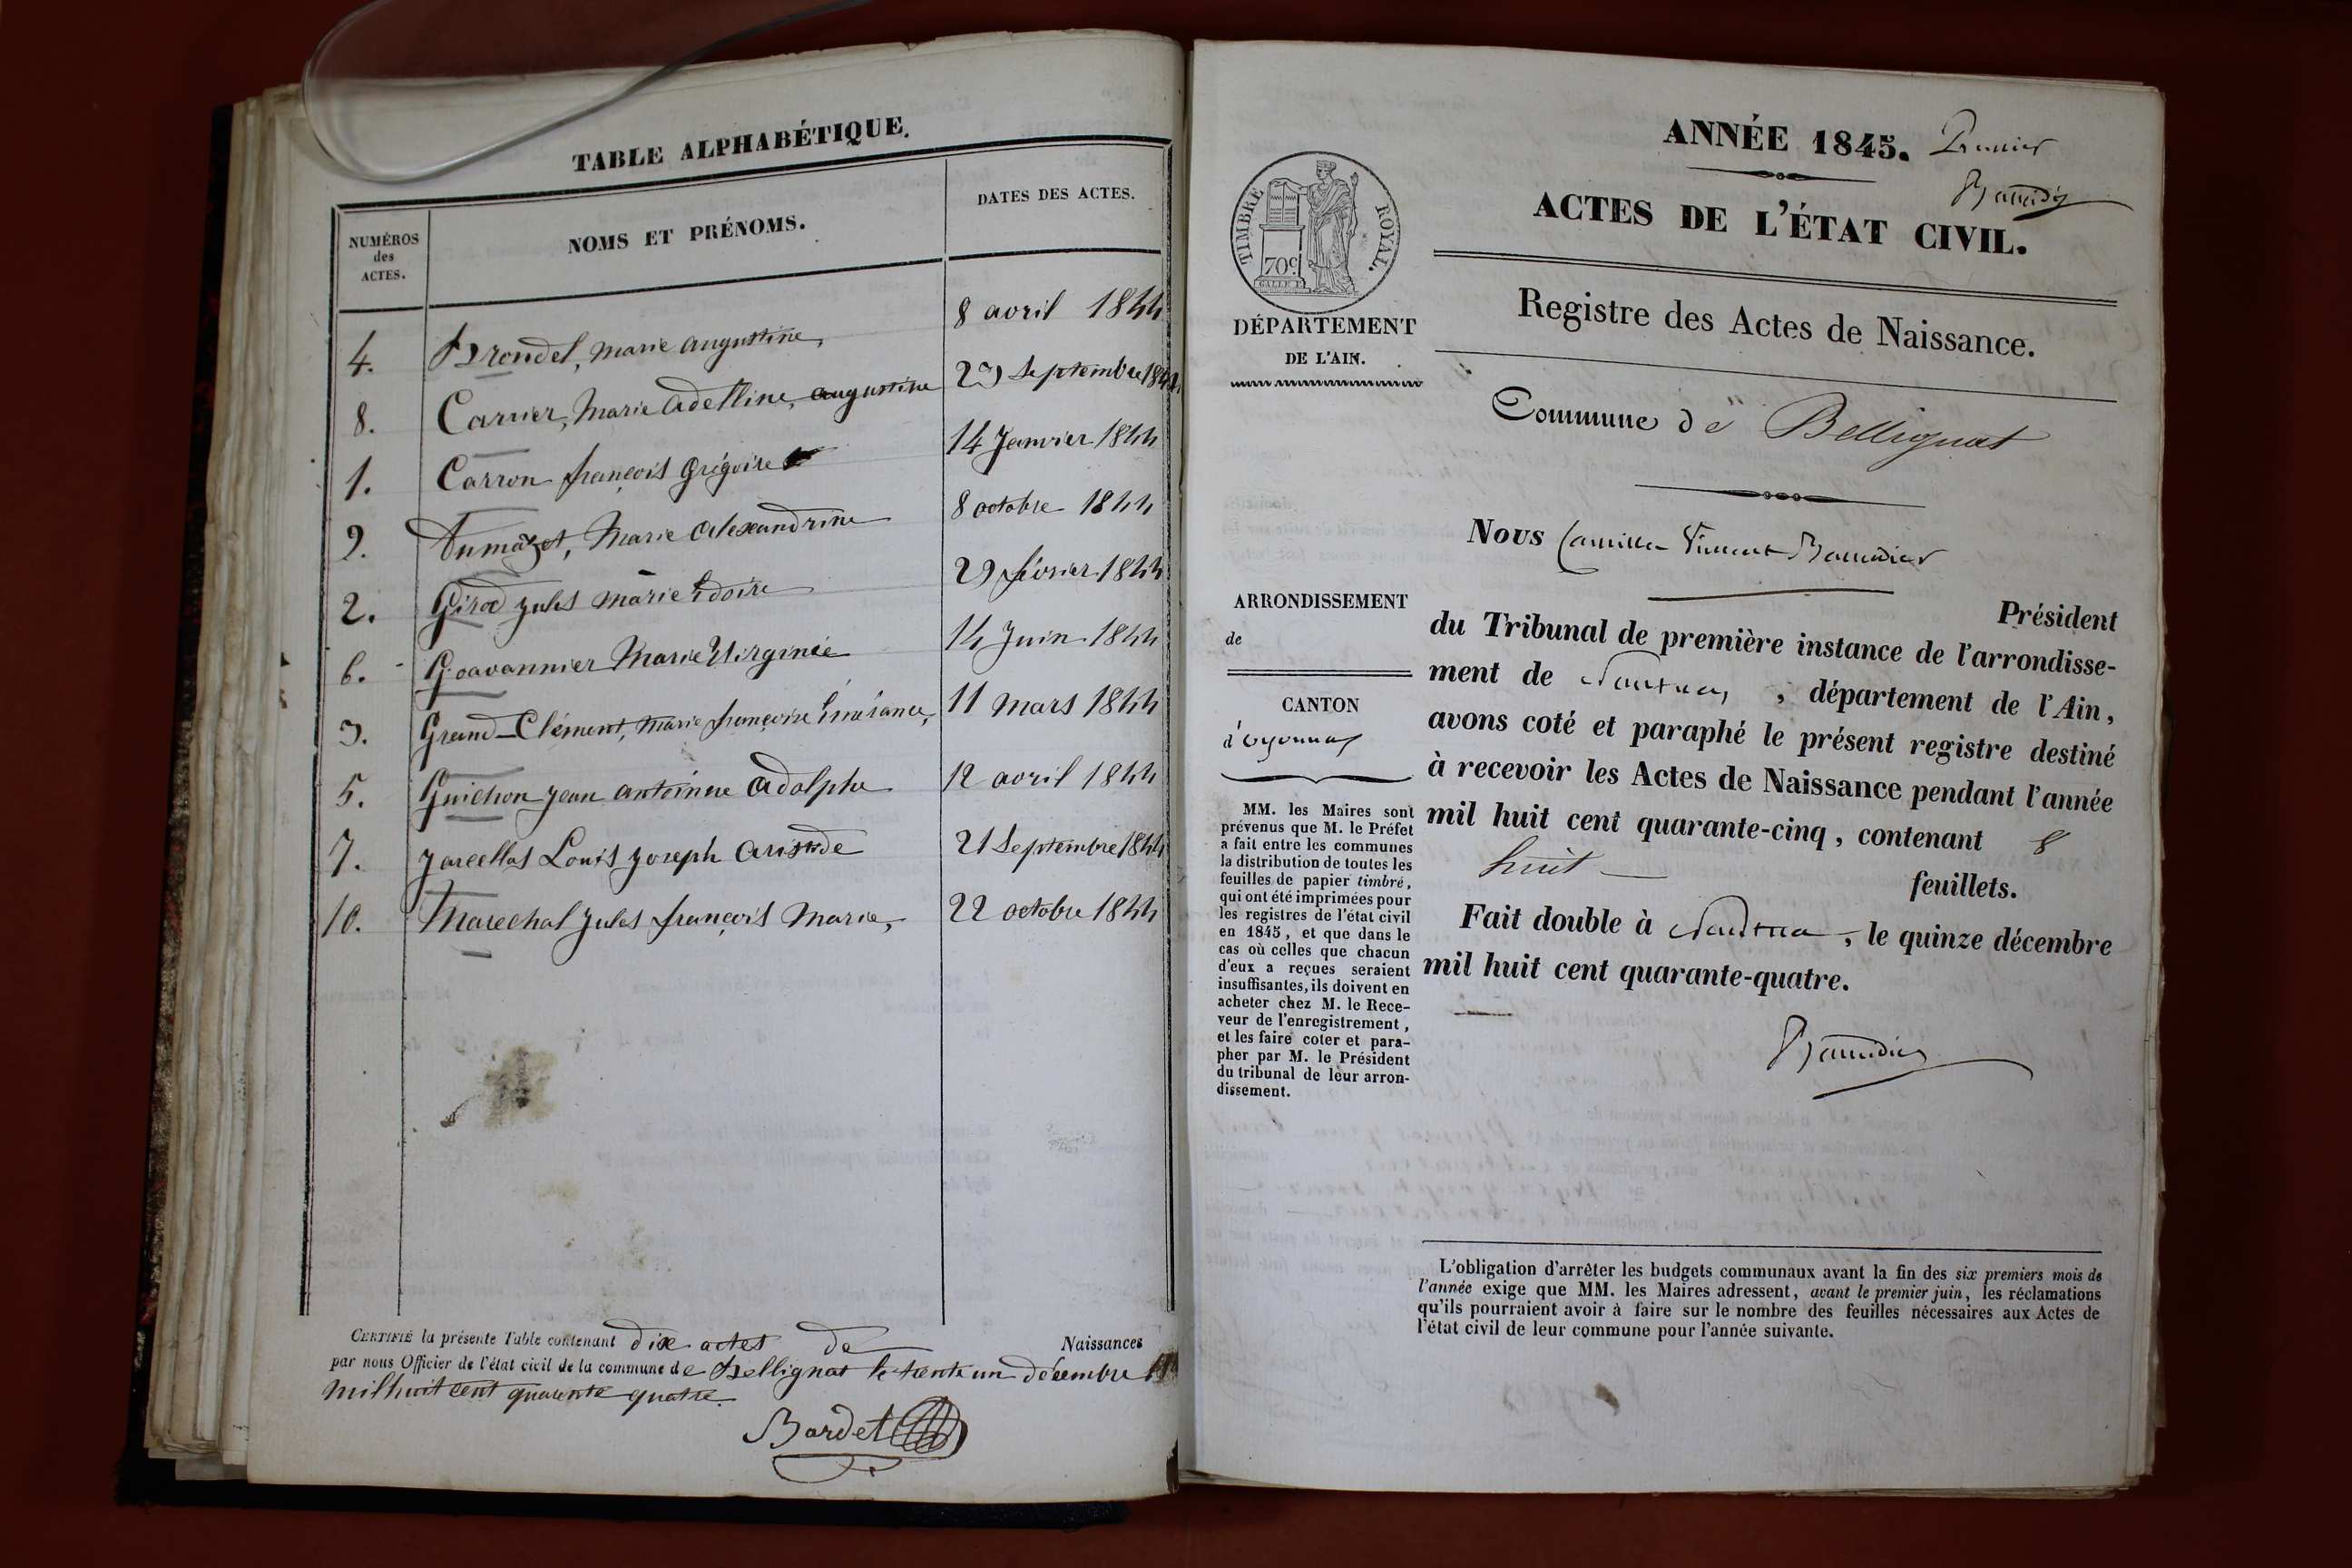 TABLE ALPHABÉTIQUE.
NUMÉROS des ACTES.
NOMS ET PRÉNOMS.
DATES DES ACTES.
4. Brondel, marie augustine, 8 avril 1844
8. Carrier, Marie adelline, augustine Septembre 1844
1. Carron françois grégoire 14 Janvier 1844
9. Dumazet, Marie alexandrine 8 octobre 1844
2. Girod jules marie 29 février 1844
6. Goavannier Marie Virginie 14 Juin 1844
3. Grand-Clément, marie françoise 11 mars 1844
5. Guichon jean antoinne adolphe 12 avril 1844
7. Jarcellas Louis joseph aristide 21 Septembre 1844
10. Marechal jules françois marie, 22 octobre 1844
CERTIFIÉ la présente Table contenant dix actes de Naissances
par nous Officier de l'état civil de la commune de Bellignat le trente un décembre
mil huit cent quarente quatre.
Bardet
ANNÉE 1845. Premier
ACTES DE L'ÉTAT CIVIL.
TIMBRE ROYAL.
70c
DÉPARTEMENT
DE L'AIN.
Registre des Actes de Naissance.
Commune de Bellignat
Nous Camille Vincent
Président
du Tribunal de première instance de l'arrondisse-
ment de Nantua, département de l'Ain,
avons coté et paraphé le présent registre destiné
à recevoir les Actes de Naissance pendant l'année
mil huit cent quarante-cinq, contenant 8
huit feuillets.
Fait double à Nantua, le quinze décembre
mil huit cent quarante-quatre.
ARRONDISSEMENT
de
CANTON
d'oyonnax
MM. les Maires sont
prévenus que M. le Préfet
a fait entre les communes
la distribution de toutes les
feuilles de papier timbré,
qui ont été imprimées pour
les registres de l'état civil
en 1845, et que dans le
cas où celles que chacun
d'eux a reçues seraient
insuffisantes, ils doivent en
acheter chez M. le Rece-
veur de l'enregistrement,
et les faire coter et para-
pher par M. le Président
du tribunal de leur arron-
dissement.
L'obligation d'arrêter les budgets communaux avant la fin des six premiers mois de
l'année exige que MM. les Maires adressent, avant le premier juin, les réclamations
qu'ils pourraient avoir à faire sur le nombre des feuilles nécessaires aux Actes de
l'état civil de leur commune pour l'année suivante.